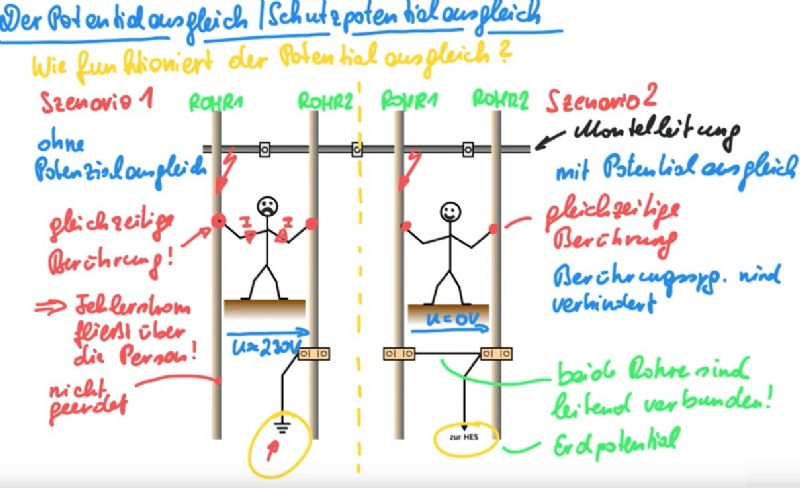 Der Potentialausgleich / Schutzpotentialausgleich
Wie funktioniert der Potentialausgleich?
Szenario 1
ROHR1
ROHR2
ohne
Potenzialausgleich
gleichzeitige
Berührung!
I
I
⇒ Fehlerstrom
fließt über
die Person!
U≈230V
nicht
geerdet
ROHR1
ROHR2
Szenario 2
Mantelleitung
mit Potentialausgleich
gleichzeitige
Berührung
Berührungsspg. wird
verhindert
U=0V
beide Rohre sind
leitend verbunden!
zur HES
Erdpotential